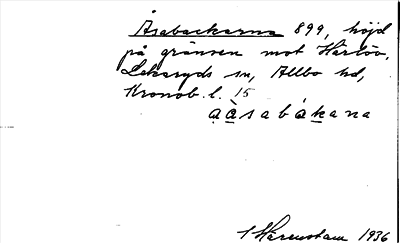 Åsabackarna 899, höjd
på gränsen mot Härlöv,
Lekaryds sn, Allbo hd,
Kronob. l. 15
ạà̱sabák̠ana
Härenstam 1936